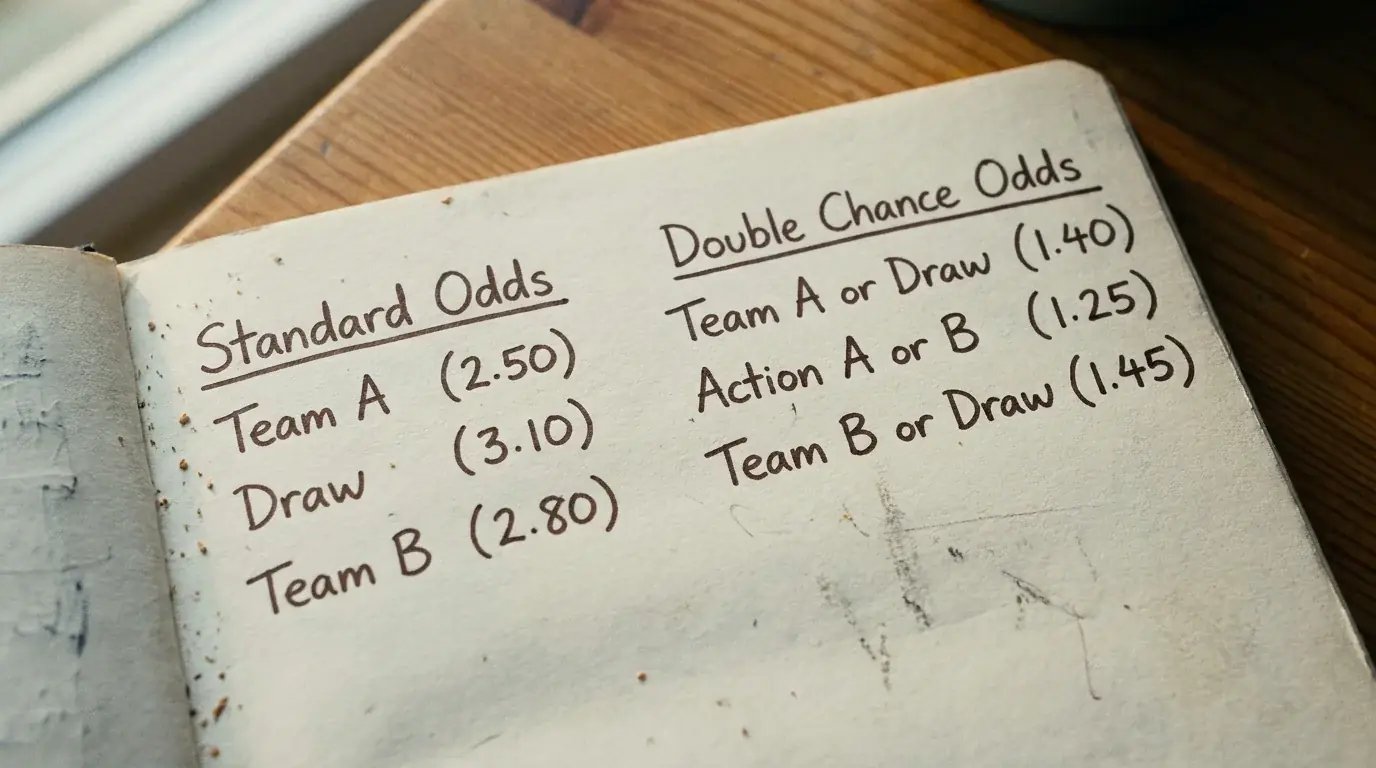 Standard Odds
Team A (2.50)
Draw (3.10)
Team B (2.80)
Double Chance Odds
Team A or Draw (1.40)
Action A or B (1.25)
Team B or Draw (1.45)